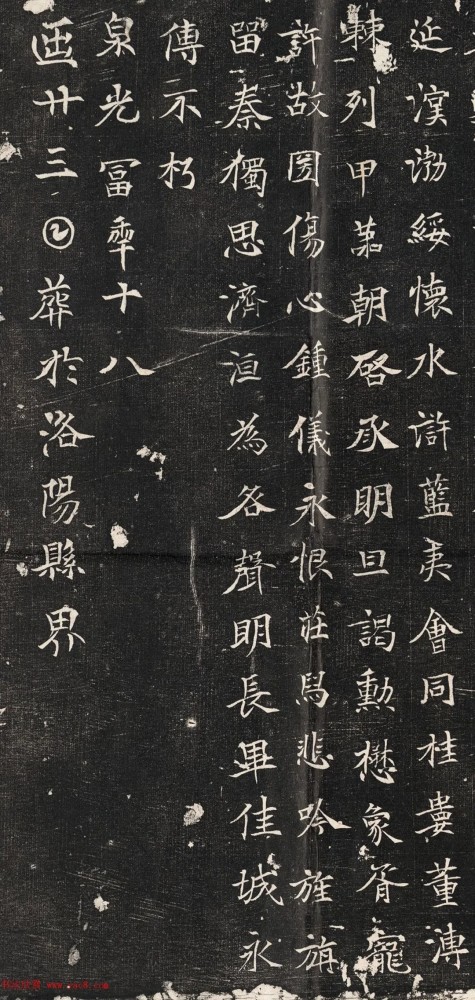 延漠渤綏懷水滸藍夷會同桂婁董溥
棘列甲苐朝啓承明旦謁勳懋象胥寵
許故圀傷心鍾儀永恨莊舃悲吟旌旃
留秦獨思濟洹為各聲明長畢佳城永
傳不朽
泉光富𠡦十八
𠥱廿三𡆠葬於洛陽縣界